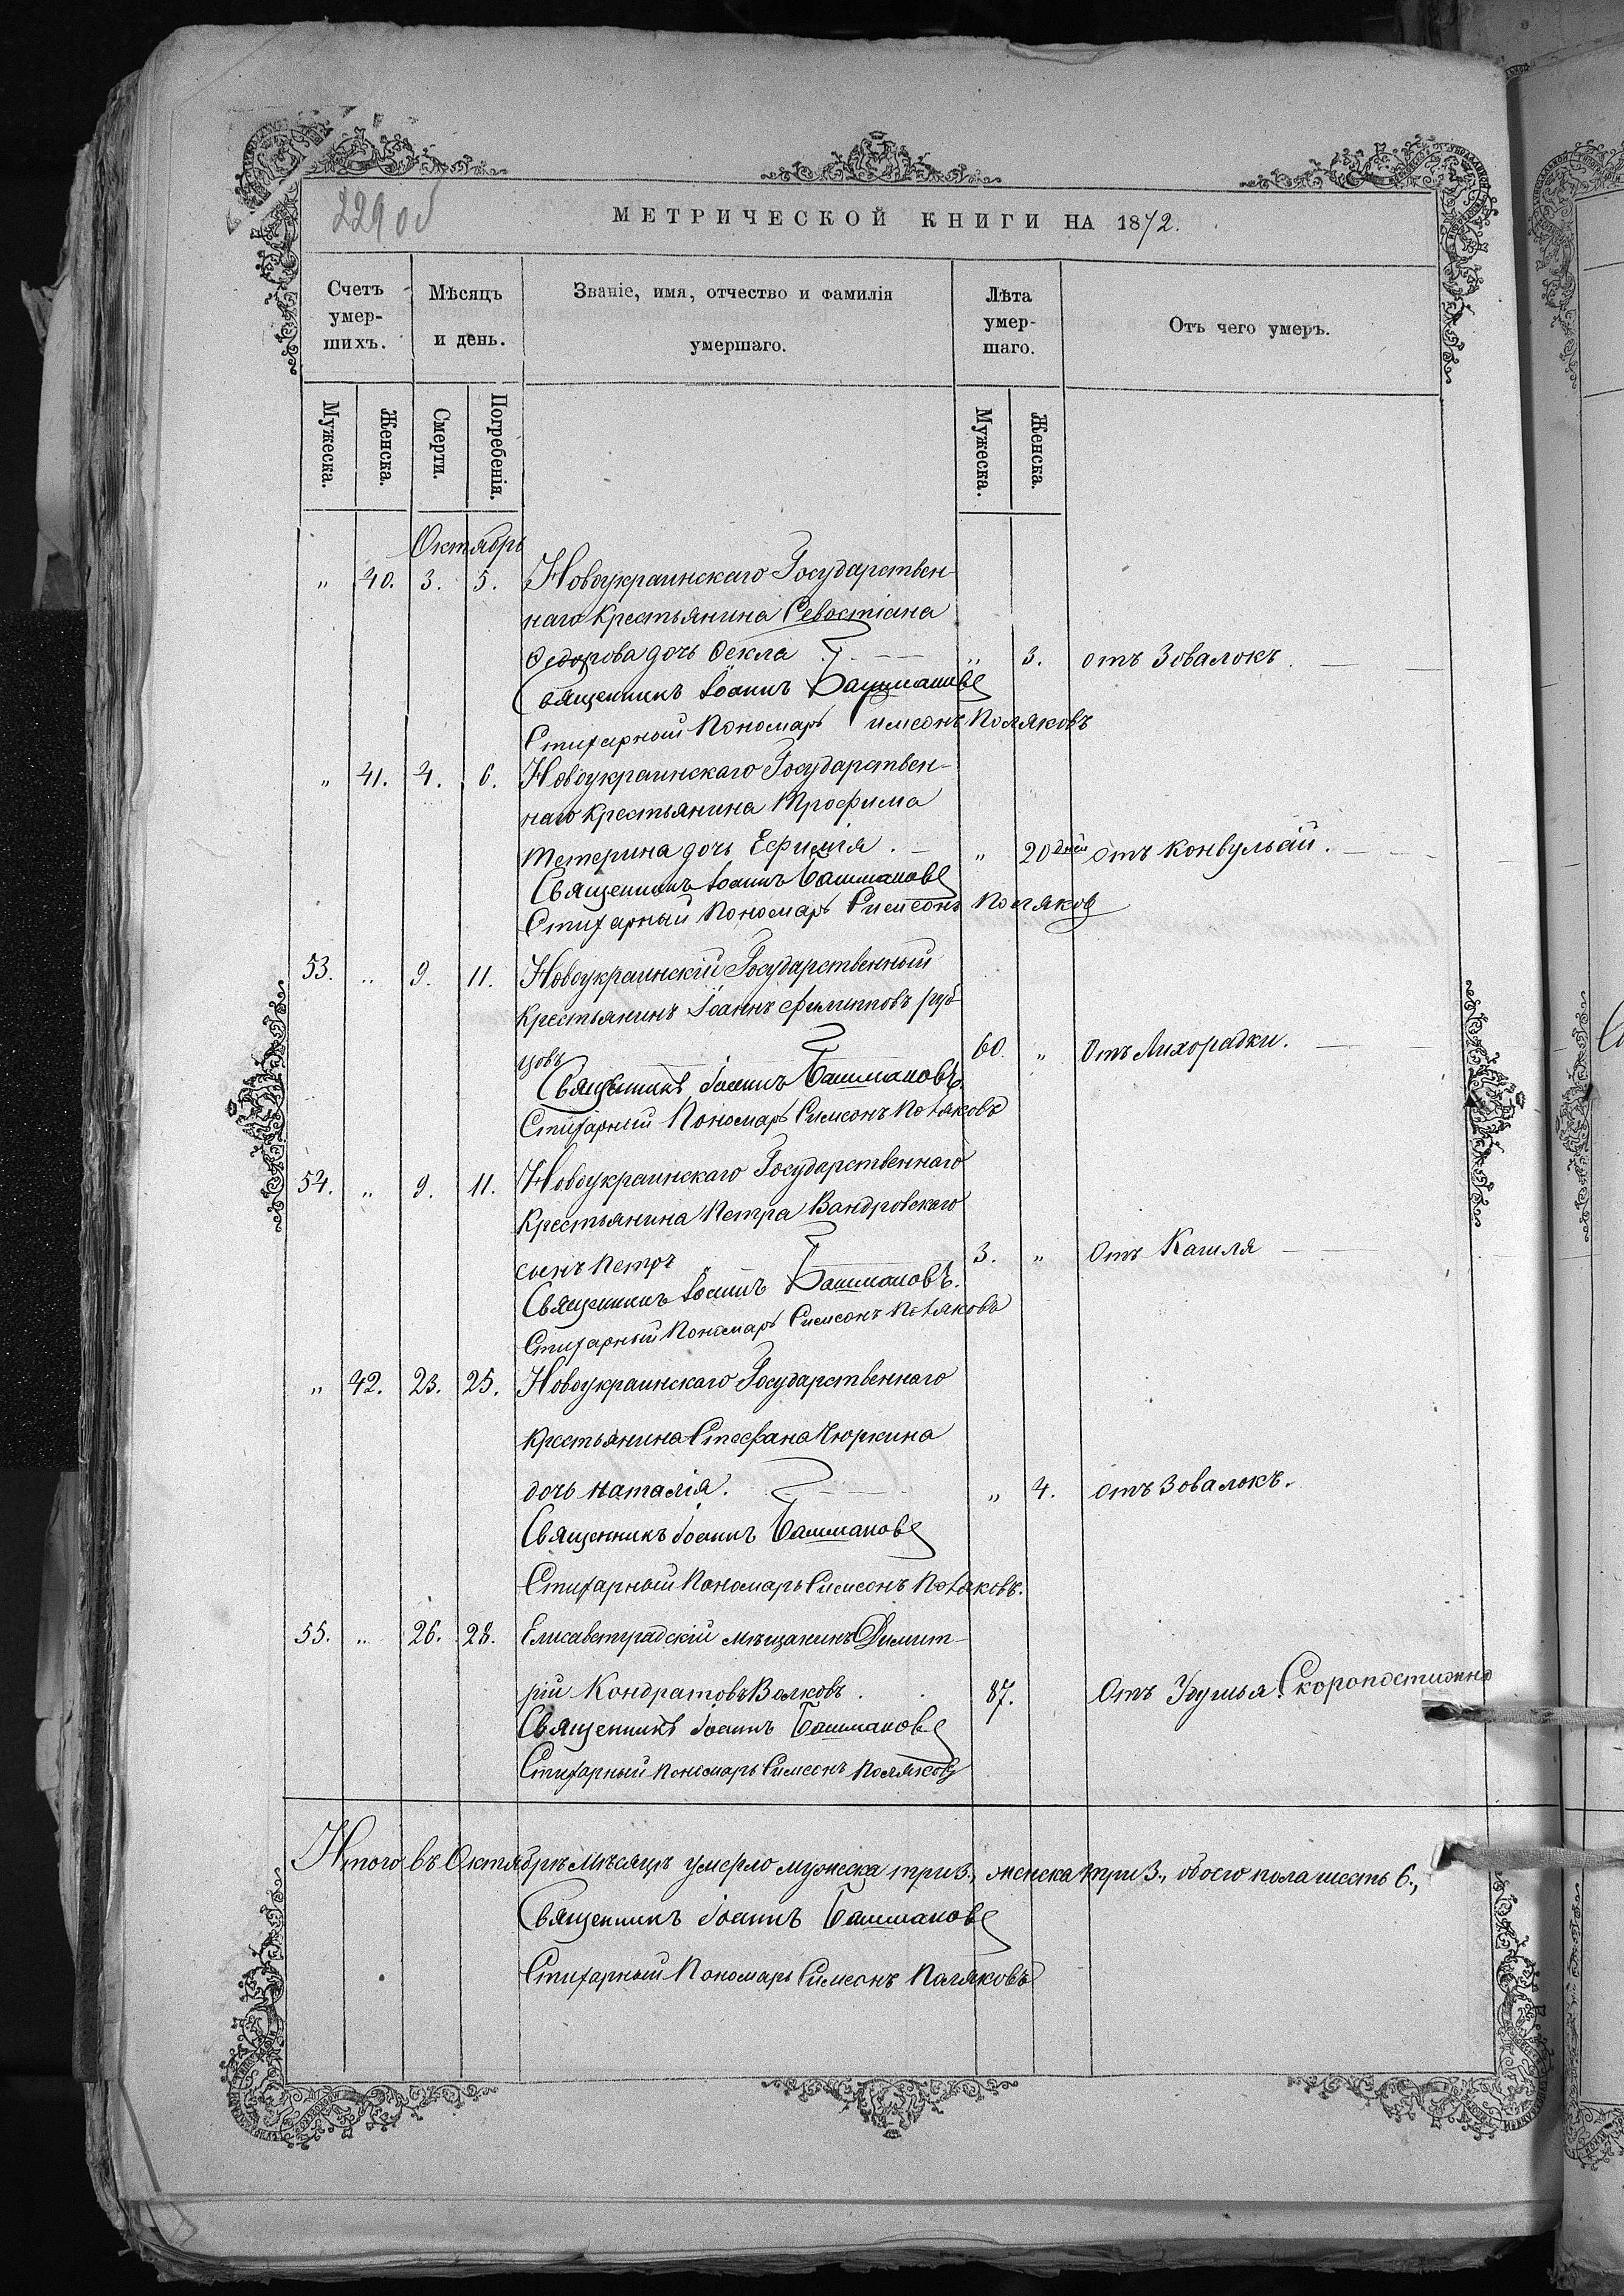 229 об
МЕТРИЧЕСКОЙ КНИГИ НА 1872.
Счетъ умер-шихъ.
Мѣсяцъ и день.
Званіе, имя, отчество и фамилія умершаго.
Лѣта умер-шаго.
Отъ чего умеръ.
Мужеска.
Женска.
Смерти.
Погребенія.
Мужеска.
Женска.
Октябрь
„ 40. 3. 5. Новоукраинскаго Государствен-
наго крестьянина Севостіана
Федорова дочь Фекла „ 3. отъ Зовалокъ.
Священникъ Іоаннъ Башмаковъ
Стихарный Пономарь Симеонъ Поляковъ
„ 41. 4. 6. Новоукраинскаго Государствен-
наго крестьянина Трофима
Тетерина дочь Ефимія. „ 20 дней отъ конвульсій.
Священникъ Іоаннъ Башмаковъ
Стихарный Пономарь Симеонъ Поляковъ
53. „ 9. 11. Новоукраинскій Государственный
крестьянинъ Іоаннъ Филипповъ руб-
цовъ 60. „ Отъ Лихорадки.
Священникъ Іоаннъ Башмаковъ.
Стихарный Пономарь Симеонъ Поляковъ
54. „ 9. 11. Новоукраинскаго Государственнаго
крестьянина Петра Вандровскаго
сынъ Петръ 3. „ Отъ Кашля
Священникъ Іоаннъ Башмаковъ.
Стихарный Пономарь Симеонъ Поляковъ
„ 42. 23. 25. Новоукраинскаго Государственнаго
крестьянина Стефана Чюркина
дочь Наталія. „ 4. отъ Зовалокъ.
Священникъ Іоаннъ Башмаковъ
Стихарный Пономарь Симеонъ Поляковъ.
55. „ 26. 28. Елисаветградскій мѣщанинъ Димит-
рій Кондратовъ Волковъ. 87. Отъ Удушья Скоропостижно
Священникъ Іоаннъ Башмаковъ
Стихарный Пономарь Симеонъ Поляковъ
Итого въ Октябрѣ Мѣсяцѣ умерло мужеска три 3., женска три 3., обоего пола шесть 6.,
Священникъ Іоаннъ Башмаковъ
Стихарный Пономарь Симеонъ Поляковъ